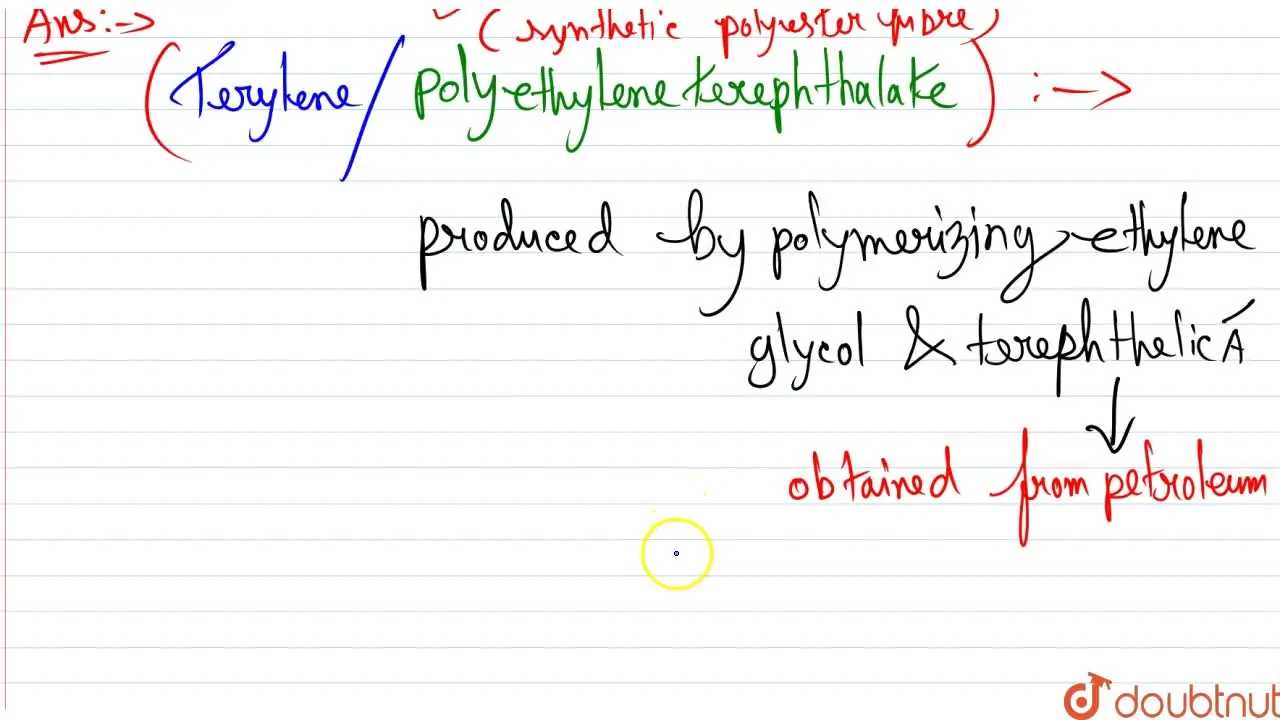 Ans:→
(synthetic polyester fibre)
(Terylene/polyethyleneterephthalate) :→
produced by polymerizing ethylene
glycol & terephthelic A
↓
obtained from petroleum
doubtnut